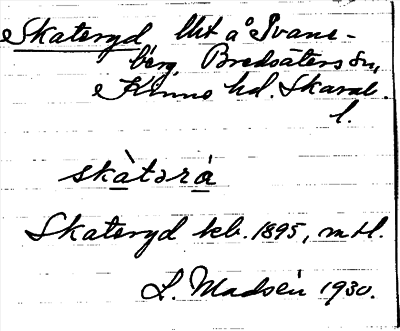 Skateryd lht å Svane-
berg, Bredsäters sn,
Kinne hd. Skarab.
l.
skàtərá
Skateryd kb. 1895, m fl.
L. Madsén 1930.